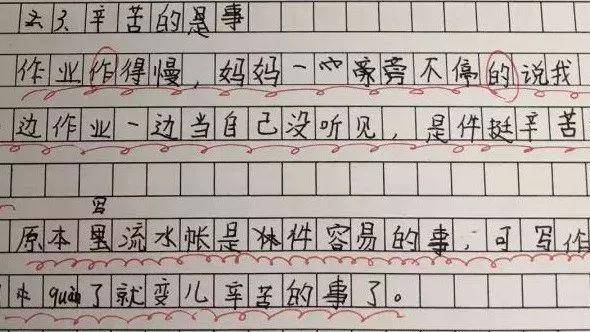 3、辛苦的是事
作业作得慢，妈妈一旁不停的说我
边作业一边当自己没听见，是件挺辛苦
写
原本里流水帐是件容易的事，可写作
了就变儿辛苦的事了。